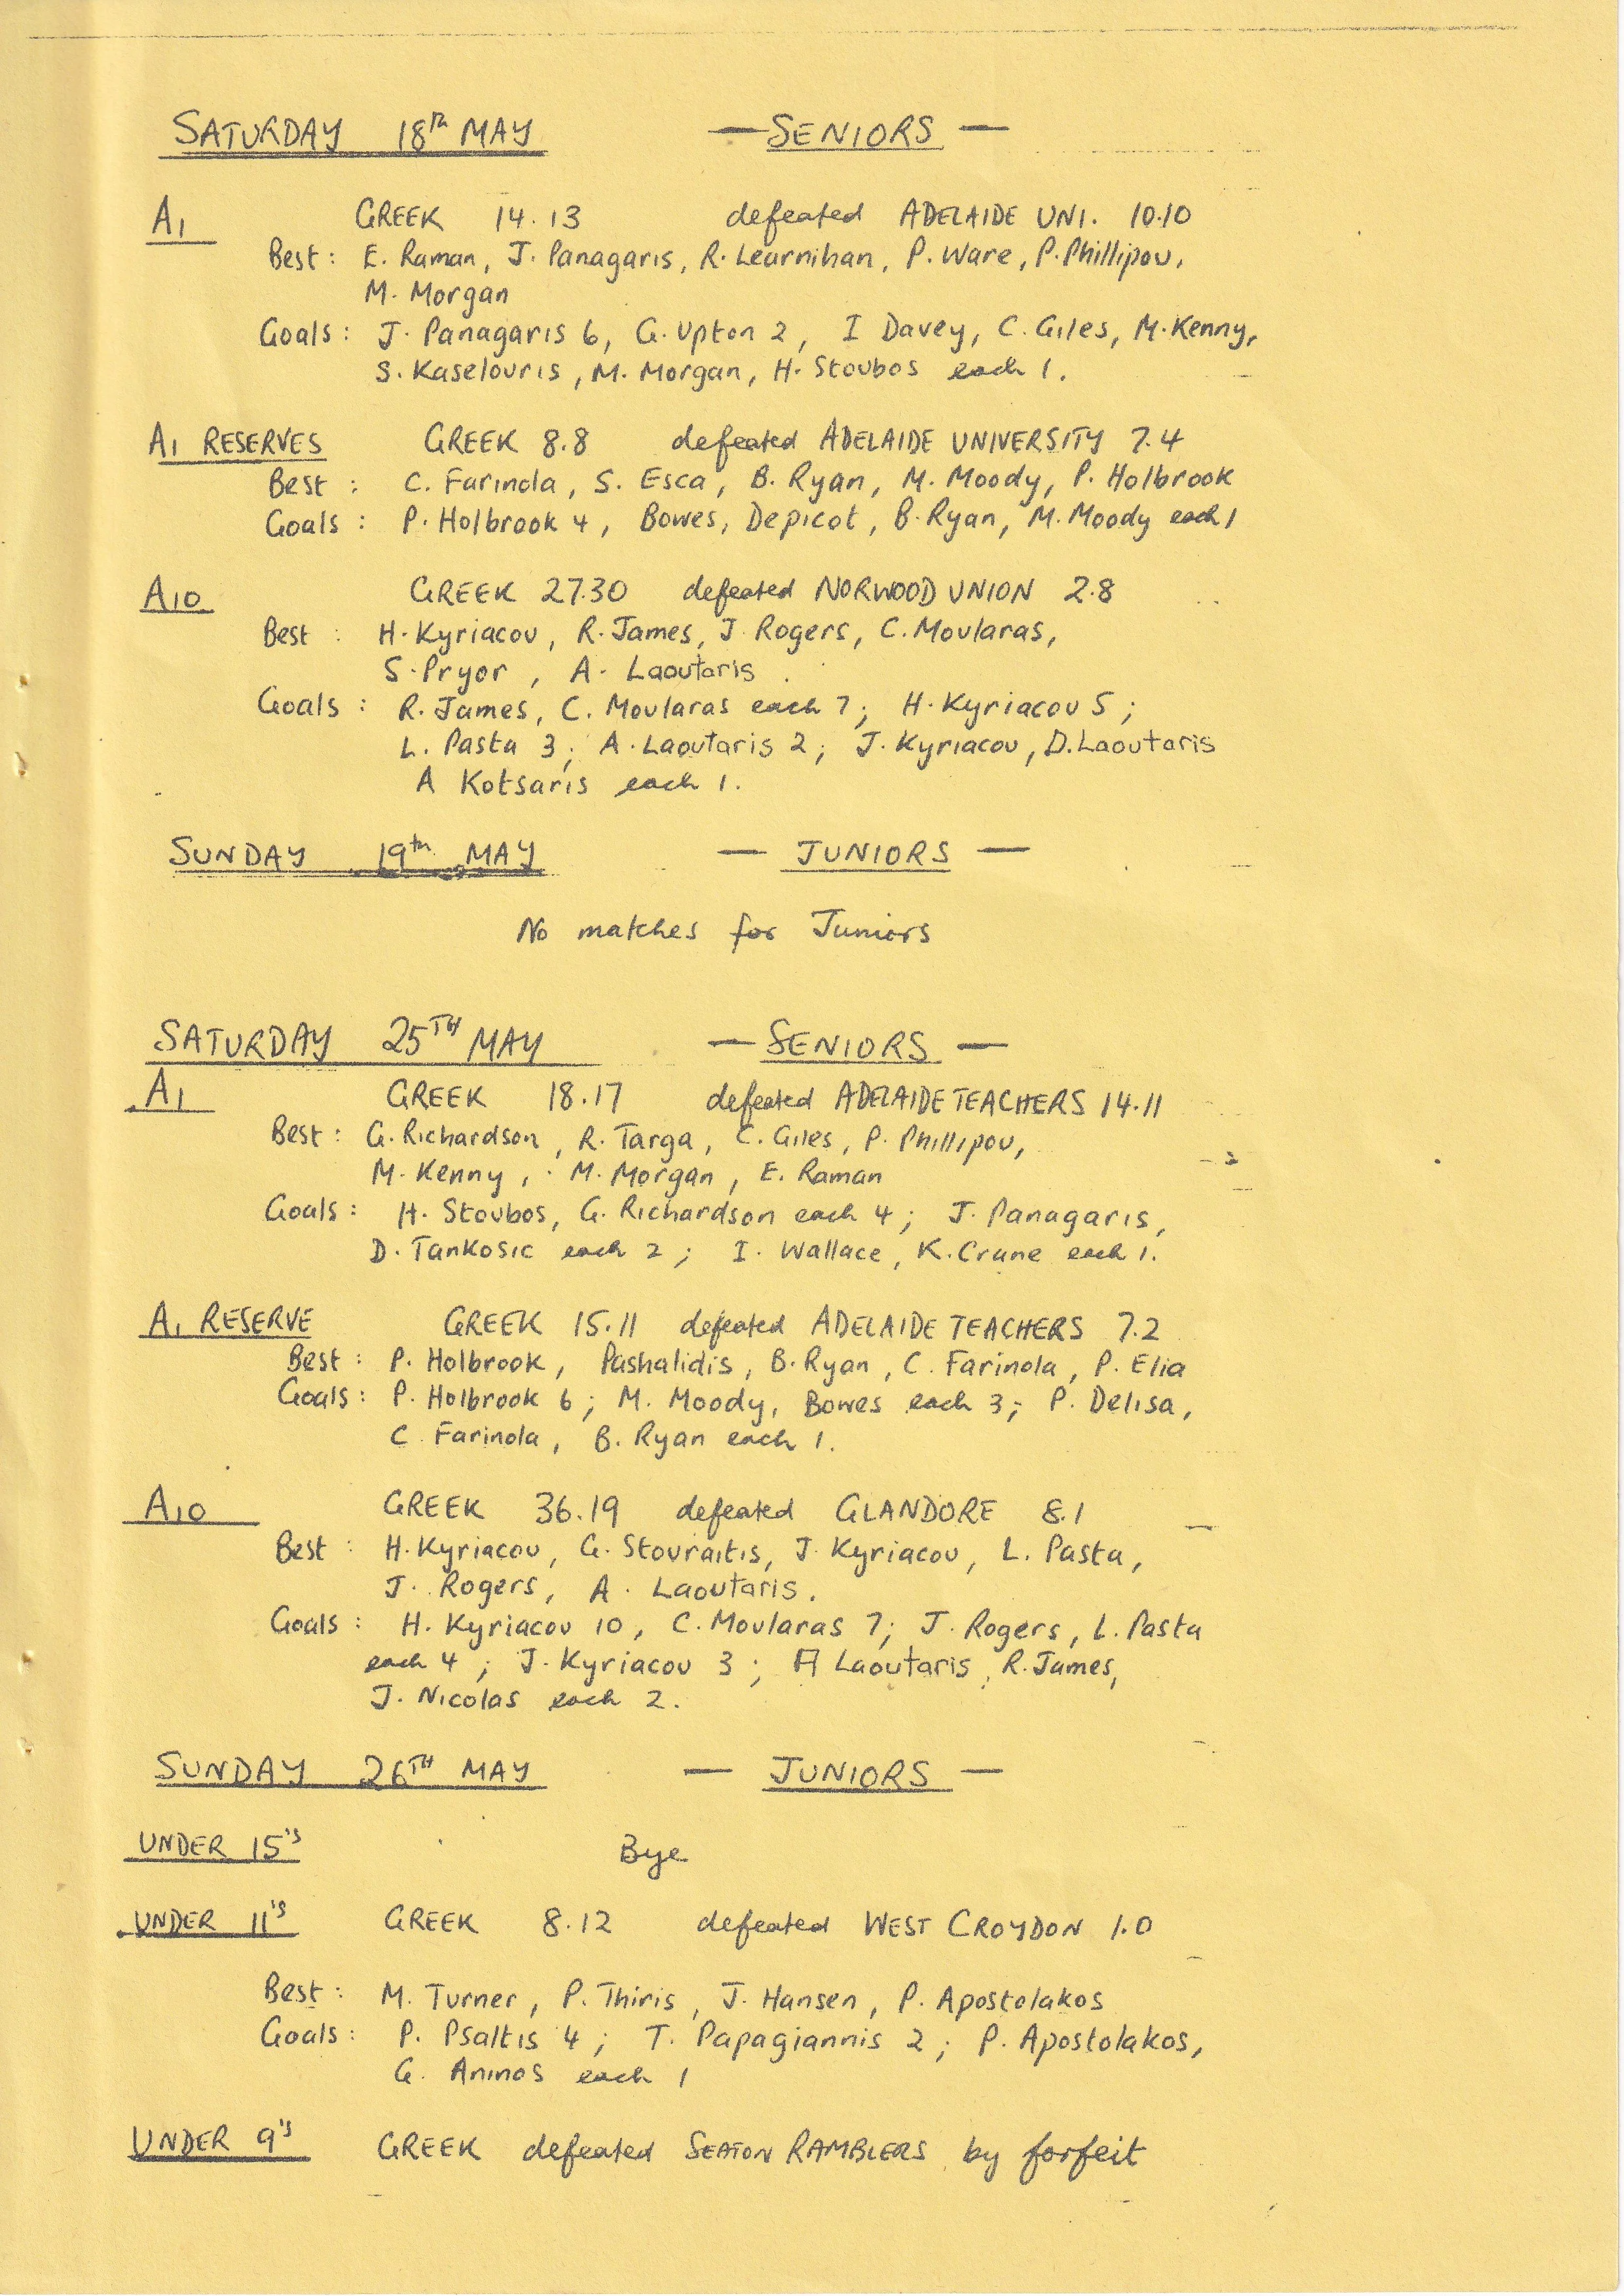 SATURDAY 18th MAY — SENIORS —
A1 GREEK 14.13 defeated ADELAIDE UNI. 10.10
Best: E. Raman, J. Panagaris, R. Learnihan, P. Ware, P. Phillipou,
M. Morgan
Goals: J. Panagaris 6, G. Upton 2, I Davey, C. Giles, M. Kenny,
S. Kaselouris, M. Morgan, H. Stoubos each 1.
A1 RESERVES GREEK 8.8 defeated ADELAIDE UNIVERSITY 7.4
Best : C. Farinola, S. Esca, B. Ryan, M. Moody, P. Holbrook
Goals : P. Holbrook 4, Bowes, Depicot, B. Ryan, M. Moody each 1
A10 GREEK 27.30 defeated NORWOOD UNION 2.8
Best : H. Kyriacou, R. James, J Rogers, C. Moularas,
S. Pryor, A. Laoutaris
Goals : R. James, C. Moularas each 7; H. Kyriacou 5;
L. Pasta 3; A. Laoutaris 2; J. Kyriacou, D. Laoutaris
A Kotsaris each 1.
SUNDAY 19th MAY — JUNIORS —
No matches for Juniors
SATURDAY 25TH MAY — SENIORS —
A1 GREEK 18.17 defeated ADELAIDE TEACHERS 14.11
Best: G. Richardson, R. Targa, C. Giles, P. Phillipou,
M. Kenny, M. Morgan, E. Raman
Goals: H. Stoubos, G. Richardson each 4; J. Panagaris,
D. Tankosic each 2; I. Wallace, K. Crane each 1.
A1 RESERVE GREEK 15.11 defeated ADELAIDE TEACHERS 7.2
Best : P. Holbrook, Pashalidis, B. Ryan, C. Farinola, P. Elia
Goals: P. Holbrook 6; M. Moody, Bowes each 3; P. Delisa,
C Farinola, B. Ryan each 1.
A10 GREEK 36.19 defeated GLANDORE 8.1
Best : H. Kyriacou, G. Stouraitis, J Kyriacou, L. Pasta,
J. Rogers, A. Laoutaris.
Goals : H. Kyriacou 10, C. Moularas 7; J. Rogers, L. Pasta
each 4; J. Kyriacou 3; A Laoutaris, R. James,
J. Nicolas each 2.
SUNDAY 26TH MAY — JUNIORS —
UNDER 15's Bye
UNDER 11's GREEK 8.12 defeated WEST CROYDON 1.0
Best: M. Turner, P. Thiris, J. Hansen, P. Apostolakos
Goals: P. Psaltis 4; T. Papagiannis 2; P. Apostolakos,
G. Aninos each 1
UNDER 9's GREEK defeated SEATON RAMBLERS by forfeit